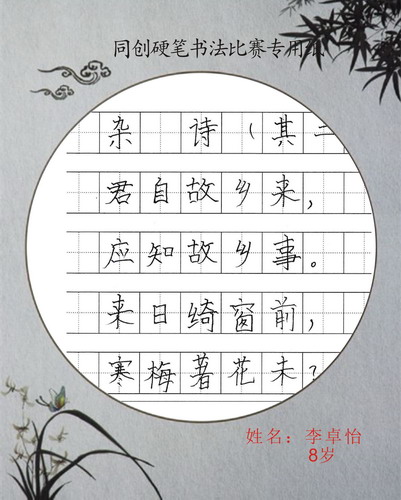 同创硬笔书法比赛专用纸
杂 诗 ( 其 二
君自故乡来,
应知故乡事。
来日绮窗前,
寒梅著花未?
姓名：李卓怡
8岁